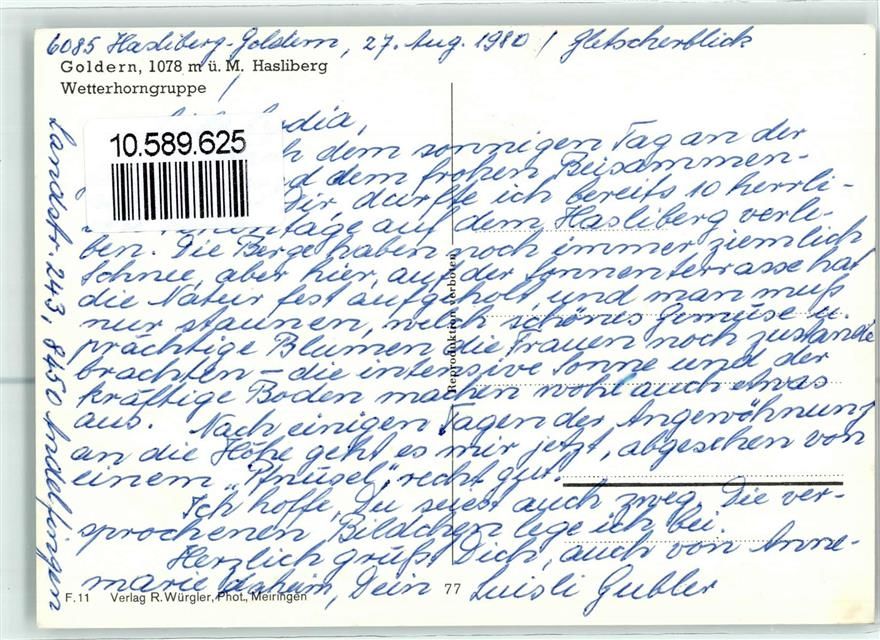 6085 Hasliberg-Goldern, 27. Aug. 1980 / Gletscherblick
Goldern, 1078 m ü. M. Hasliberg
Wetterhorngruppe
dia,
10.589.625
dem sonnigen Tag an der
d dem frohen Beisammen-
Dir, durfte ich bereits 10 herrli-
tage auf dem Hasliberg verle-
ben. Die Berge haben noch immer ziemlich
Schnee, aber hier, auf der Sonnenterrasse hat
die Natur fest aufgeholt, und man muß
nur staunen, welch schönes Gemüse u.
prächtige Blumen die Frauen noch zustande
brachten – die intensive Sonne und der
kräftige Boden machen wohl auch etwas
aus. Nach einigen Tagen der Angewöhnung
an die Höhe geht es mir jetzt, abgesehen von
einem „Pfnüsel“, recht gut.
Ich hoffe, Du seiest auch zweg. Die ver-
sprochenen Bildchen lege ich bei.
Herzlich grüßt Dich, auch von Anne-
marie daheim, Dein Luisli Gubler
Landstr. 243, 8450 Andelfingen
Reproduktion verboten
F. 11 Verlag R. Würgler, Phot., Meiringen
77